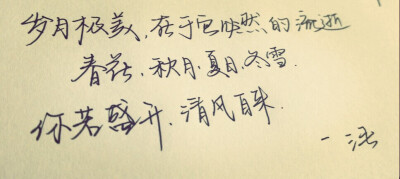 岁月极美，在于它必然的流逝
春花、秋月、夏日、冬雪.
你若盛开，清风自来.